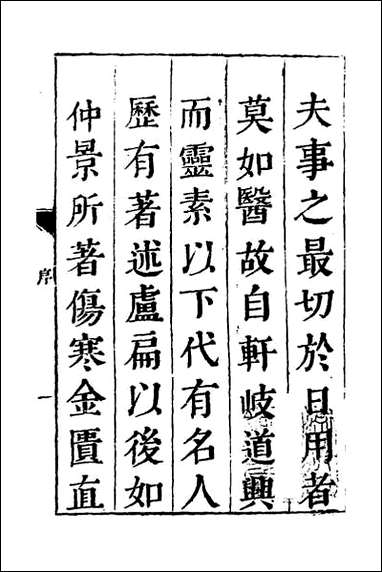 夫事之最切於日用者
莫如醫故自軒岐道興
而靈素以下代有名人
歷有著述盧扁以後如
仲景所著傷寒金匱直
序
一